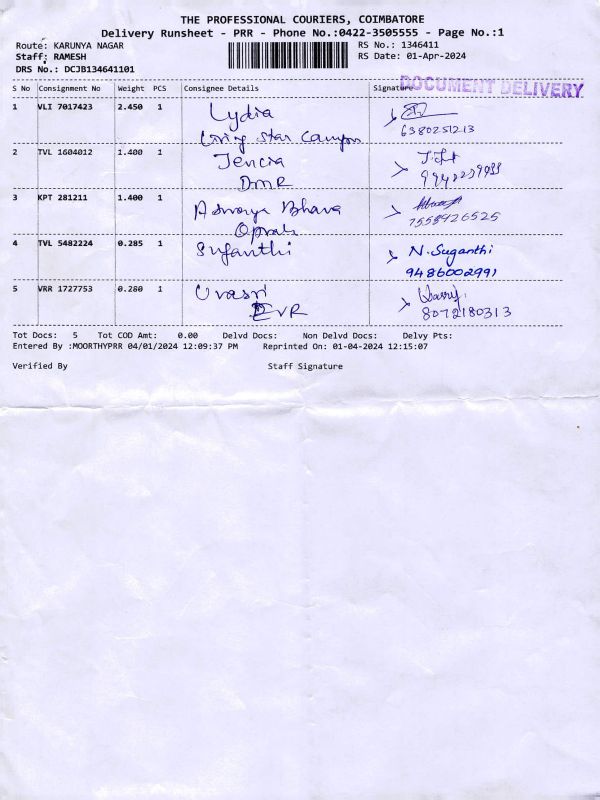 THE PROFESSIONAL COURIERS, COIMBATORE
Delivery Runsheet - PRR - Phone No.:0422-3505555 - Page No.:1
Route: KARUNYA NAGAR RS No.: 1346411
Staff: RAMESH RS Date: 01-Apr-2024
DRS No.: DCJB134641101
DOCUMENT DELIVERY
S No Consignment No Weight PCS Consignee Details Signature
1 VLI 7017423 2.450 1 Lydia
Living Star Campus 6380251213
2 TVL 1604012 1.400 1 Jencia
DMR
3 KPT 281211 1.400 1 Bhava
7558926525
4 TVL 5482224 0.285 1 Suganthi N. Suganthi
9486002991
5 VRR 1727753 0.280 1 Urasri
EVR 8072180313
Tot Docs: 5 Tot COD Amt: 0.00 Delvd Docs: Non Delvd Docs: Delvy Pts:
Entered By :MOORTHYPRR 04/01/2024 12:09:37 PM Reprinted On: 01-04-2024 12:15:07
Verified By Staff Signature